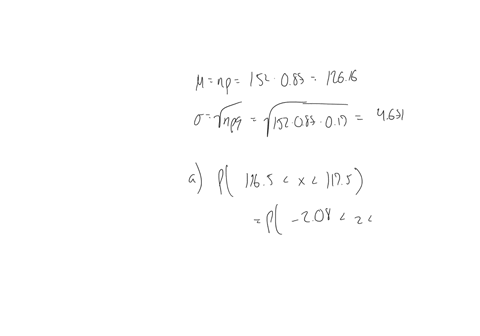 μ = np = 152 · 0.83 = 126.16
σ = √npq = √152·0.83·0.17 = 4.631
a) P( 116.5 < x < 117.5 )
= P( -2.08 < z <